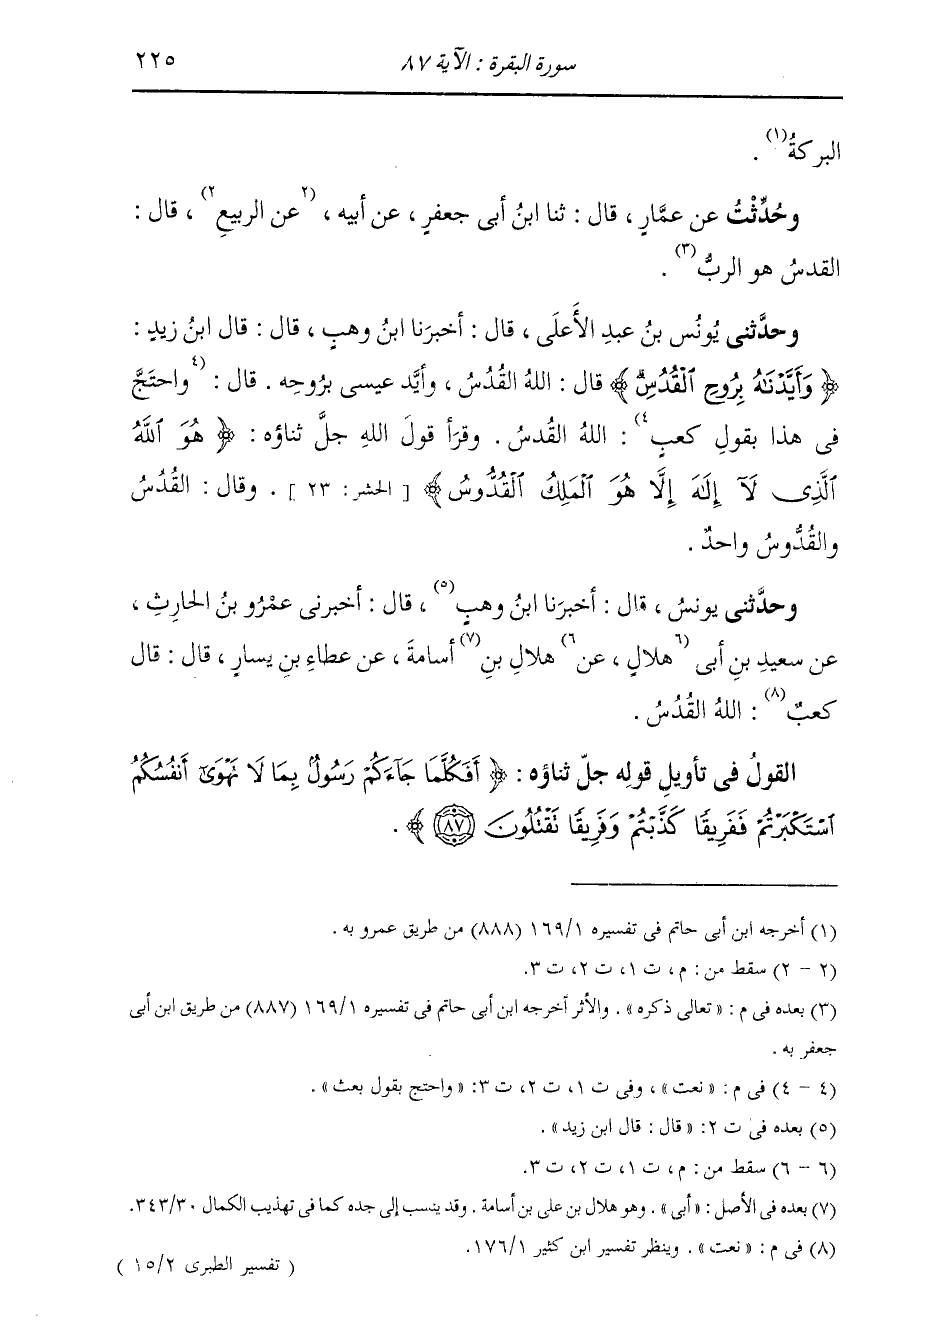 سورة البقرة : الآية ٨٧ ٢٢٥
البركةُ(١) .
وحُدِّثْتُ عن عمَّارٍ ، قال : ثنا ابنُ أبى جعفرٍ ، عن أبيه ، (٢عن الربيعِ٢) ، قال :
القدسُ هو الربُّ(٣) .
وحدَّثنى يُونُس بنُ عبدِ الأَعلَى ، قال : أخبرَنا ابنُ وهبٍ ، قال : قال ابنُ زيدٍ :
﴿ وَأَيَّدْنَٰهُ بِرُوحِ ٱلْقُدُسِ ﴾ قال : اللهُ القُدُسُ ، وأيَّد عيسى بِرُوحِه . قال : (٤واحتَجَّ
فى هذا بقولِ كعبٍ٤) : اللهُ القُدسُ . وقرَأ قولَ اللهِ جلَّ ثناؤه : ﴿ هُوَ ٱللَّهُ
ٱلَّذِى لَآ إِلَٰهَ إِلَّا هُوَ ٱلْمَلِكُ ٱلْقُدُّوسُ ﴾ [ الحشر : ٢٣ ] . وقال : القُدُسُ
والقُدُّوسُ واحدٌ .
وحدَّثنى يونسُ ، قال : أخبرَنا ابنُ وهبٍ(٥) ، قال : أخبرنى عمْرُو بنُ الحارثِ ،
عن سعيدِ بنِ أبى (٦هلالٍ ، عن٦) هلالِ بنِ(٧) أسامةَ ، عن عطاءِ بنِ يسارٍ ، قال : قال
كعبٌ(٨) : اللهُ القُدُسُ .
القولُ فى تأويلِ قولِه جلّ ثناؤه : ﴿ أَفَكُلَّمَا جَآءَكُمْ رَسُولٌۢ بِمَا لَا تَهْوَىٰٓ أَنفُسُكُمُ
ٱسْتَكْبَرْتُمْ فَفَرِيقًا كَذَّبْتُمْ وَفَرِيقًا تَقْتُلُونَ ٨٧ ﴾ .
(١) أخرجه ابن أبى حاتم فى تفسيره ١٦٩/١ (٨٨٨) من طريق عمرو به .
(٢ - ٢) سقط من : م ، ت ١، ت ٢، ت ٣.
(٣) بعده فى م : « تعالى ذكره » . والأثر أخرجه ابن أبى حاتم فى تفسيره ١٦٩/١ (٨٨٧) من طريق ابن أبى
جعفر به .
(٤ - ٤) فى م : « نعت » ، وفى ت ١، ت ٢، ت ٣: « واحتج بقول بعث » .
(٥) بعده فى ت ٢: « قال : قال ابن زيد » .
(٦ - ٦) سقط من : م ، ت ١، ت ٢، ت ٣.
(٧) بعده فى الأصل : « أبى » . وهو هلال بن على بن أسامة . وقد ينسب إلى جده كما فى تهذيب الكمال ٣٤٣/٣٠.
(٨) فى م : « نعت » . وينظر تفسير ابن كثير ١٧٦/١.
( تفسير الطبرى ١٥/٢ )